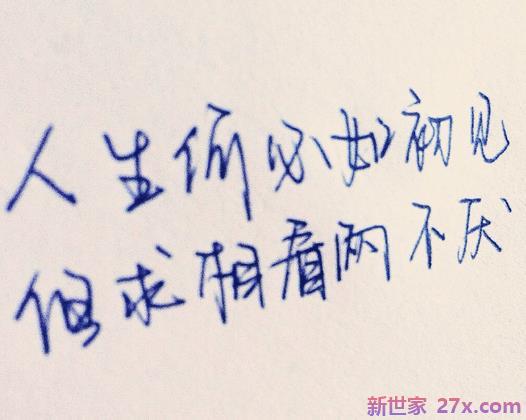 人生何必如初见
但求相看两不厌
新世家 27x.com